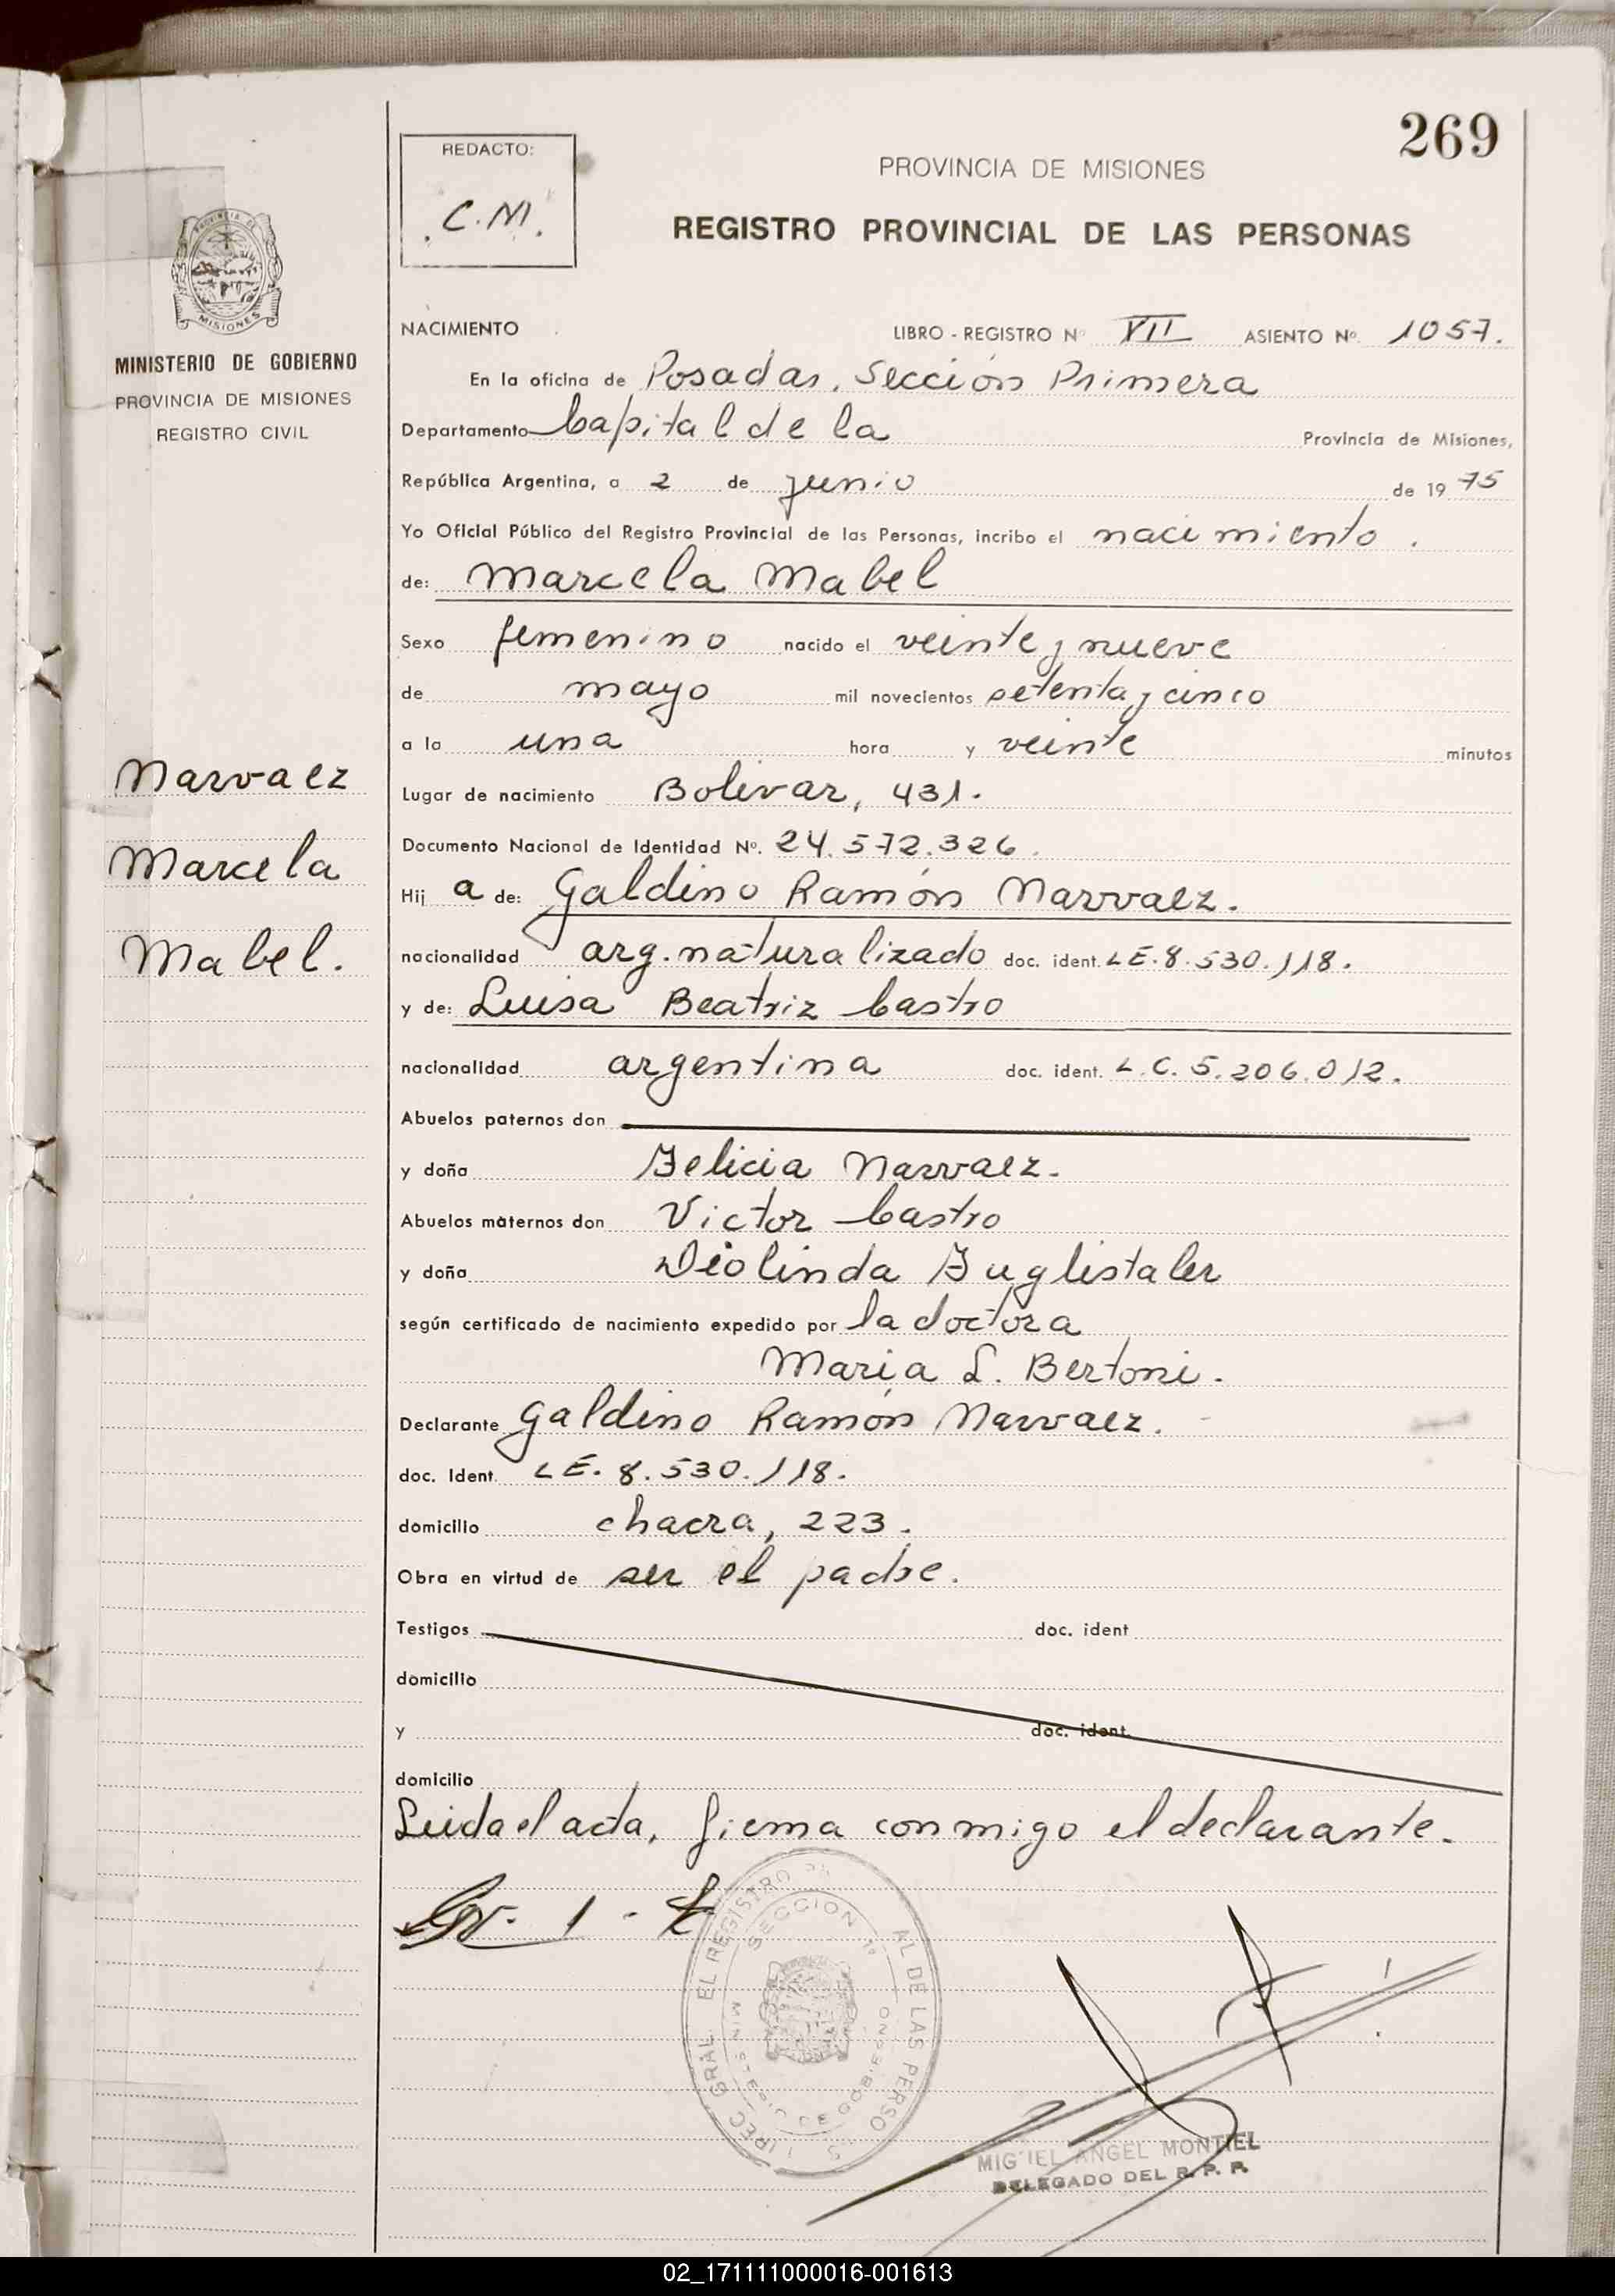 269
REDACTO:
C.M.
PROVINCIA DE MISIONES
REGISTRO PROVINCIAL DE LAS PERSONAS
MISIONES
MINISTERIO DE GOBIERNO
PROVINCIA DE MISIONES
REGISTRO CIVIL
NACIMIENTO LIBRO - REGISTRO Nº VII ASIENTO Nº. 1057.
En la oficina de Posadas, Sección Primera
Departamento Capital de la Provincia de Misiones,
República Argentina, a 2 de junio de 1975
Yo Oficial Público del Registro Provincial de las Personas, incribo el nacimiento.
de: Marcela Mabel
Sexo femenino nacido el veinte y nueve
de mayo mil novecientos setenta y cinco
a la una hora y veinte minutos
Narvaez
Lugar de nacimiento Bolívar, 431.
Documento Nacional de Identidad Nº. 24.572.326.
Marcela
Hij a de: Galdino Ramón Narvaez.
Mabel.
nacionalidad arg. naturalizado doc. ident. LE. 8.530.118.
y de: Luisa Beatriz Castro
nacionalidad argentina doc. ident. L.C. 5.206.012.
Abuelos paternos don
y doña Felicia Narvaez.
Abuelos maternos don Victor Castro
y doña Diolinda Fuglistaler
según certificado de nacimiento expedido por la doctora
María L. Bertoni.
Declarante Galdino Ramón Narvaez.
doc. Ident. LE. 8.530.118.
domicilio chacra, 223.
Obra en virtud de ser el padre.
Testigos doc. ident
domicilio
y doc. ident.
domicilio
Leida el acta, firma conmigo el declarante.
SECCION 1ª
MINISTERIO DE GOBIERNO
MIGUEL ANGEL MONTIEL
DELEGADO DEL R. P. P.
02_171111000016-001613